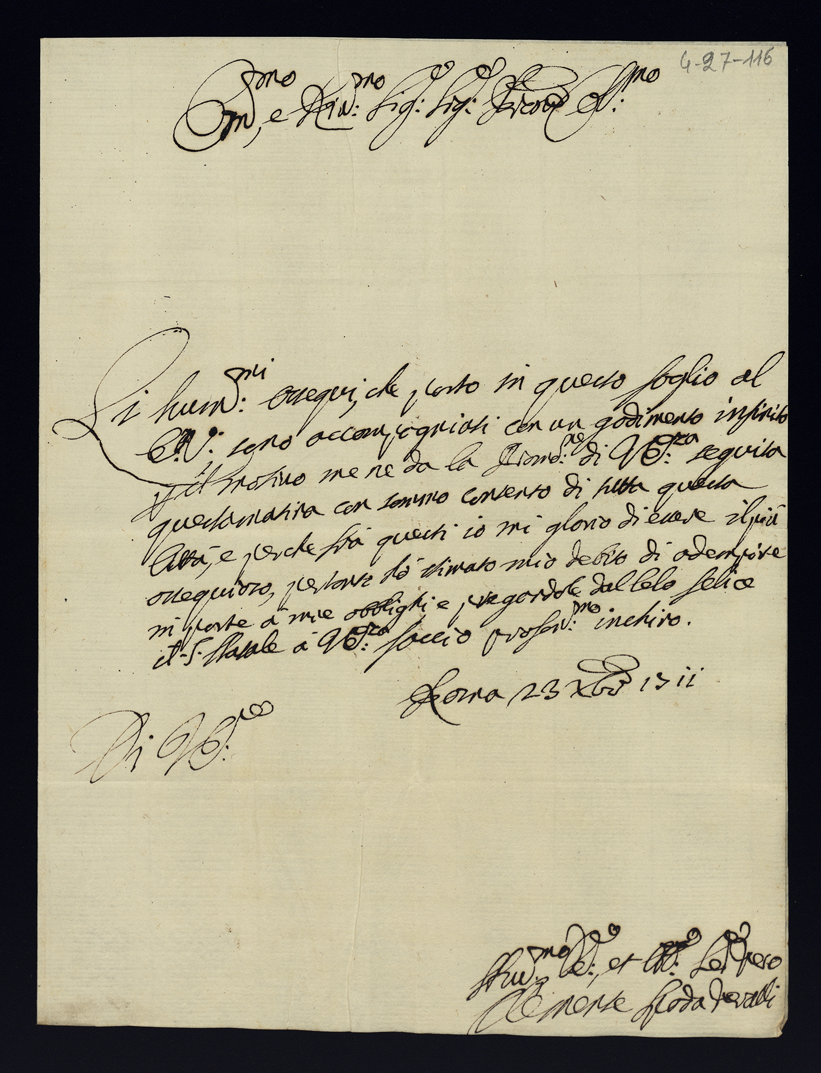 4-27-116
Em.mo, e R.mo: Sig.e: Sig.e: P.ron Col:mo
Li hum:mi ossequi, che porto in questo foglio al
E: V: sono accompagniati con un godimento infinito
il motivo me ne da la Prom:ne di VE:za seguita
questa matina con sommo contento di tutta questa
Città, e perche frà questi io mi glorio di essere il più
ossequioso, pertanto hò stimato mio debito di adempire
in parte à miei oblighi e pregandole dal Celo felice
il S. Natale à VE:za faccio profon:mo inchino.
Roma 23 Xbre 1711
Di VE:
Hum:mo De:, et Ob: Ser vero
Clemente Spada